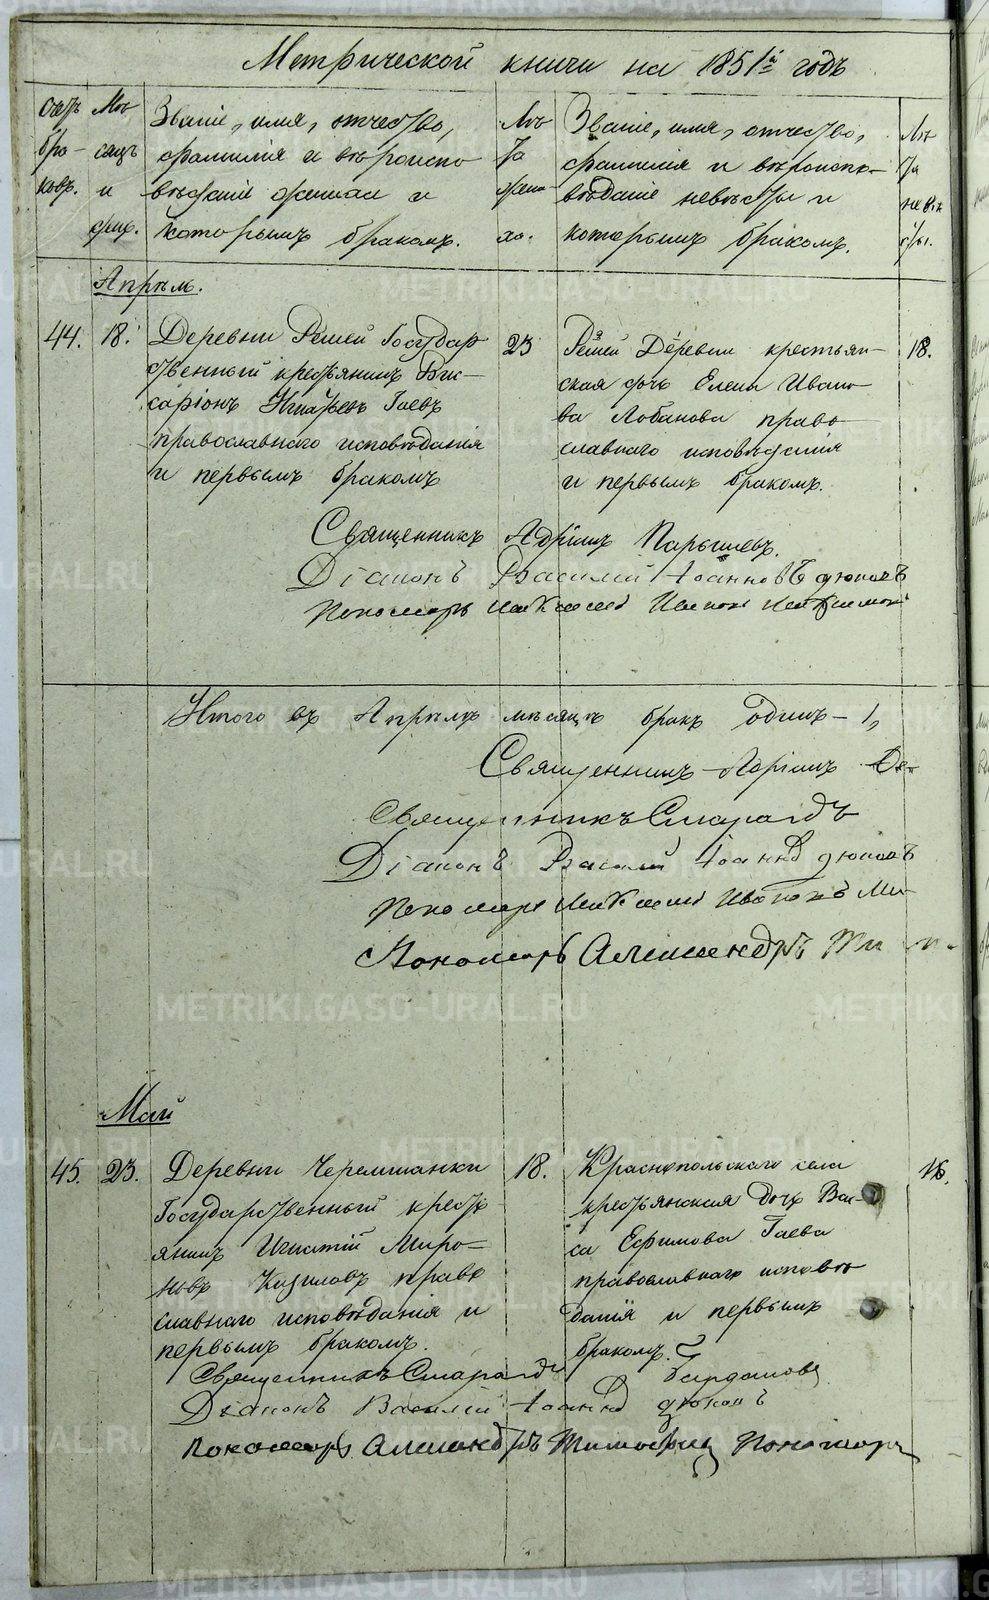 Метрической книги на 1851й годъ
Счетъ браковъ.
Мѣсяцъ и число.
Званіе, имя, отчество,
фамилія и вѣроиспо
вѣданіе жениха и
которымъ бракомъ.
Лѣта жениха.
Званіе, имя, отчество,
фамилія и вѣроиспо-
вѣданіе невѣсты и
которымъ бракомъ.
Лѣта невѣсты.
Апрѣль.
44. 18.
Деревни Решей Государ
ственный крестьянинъ Вис-
саріонъ Гаевъ
православнаго исповѣданія
и первымъ бракомъ
23
Решей Деревни крестьян-
ская дочь Елена Ивано-
ва Лобанова право
славнаго исповѣданія
и первымъ бракомъ.
18.
Священникъ Адріанъ Парышевъ.
Діаконъ Василий Іоанновъ Дюковъ
Пономарь Ивановъ
Итого въ Апрѣлѣ мѣсяцѣ бракъ одинъ - 1,
Священникъ Адріанъ
Священникъ Смарагдъ
Діаконъ Василий Іоаннъ Дюковъ
Пономарь Ивановъ
Пономарь Александръ
Май
45. 23.
Деревни Черемшанки
Государственный кресть
янинъ Игнатій Миро-
новъ Казиловъ право
славнаго исповѣданія и
первымъ бракомъ.
18.
Краснопольскаго села
крестьянская дочь Вас-
са Ефимова Гаева
православнаго исповѣ
данія и первымъ
бракомъ.
16.
Священникъ Смарагдъ
Діаконъ Василій Іоаннъ Дюковъ
Пономарь Александръ Пономарь
METRIKI.GASO-URAL.RU